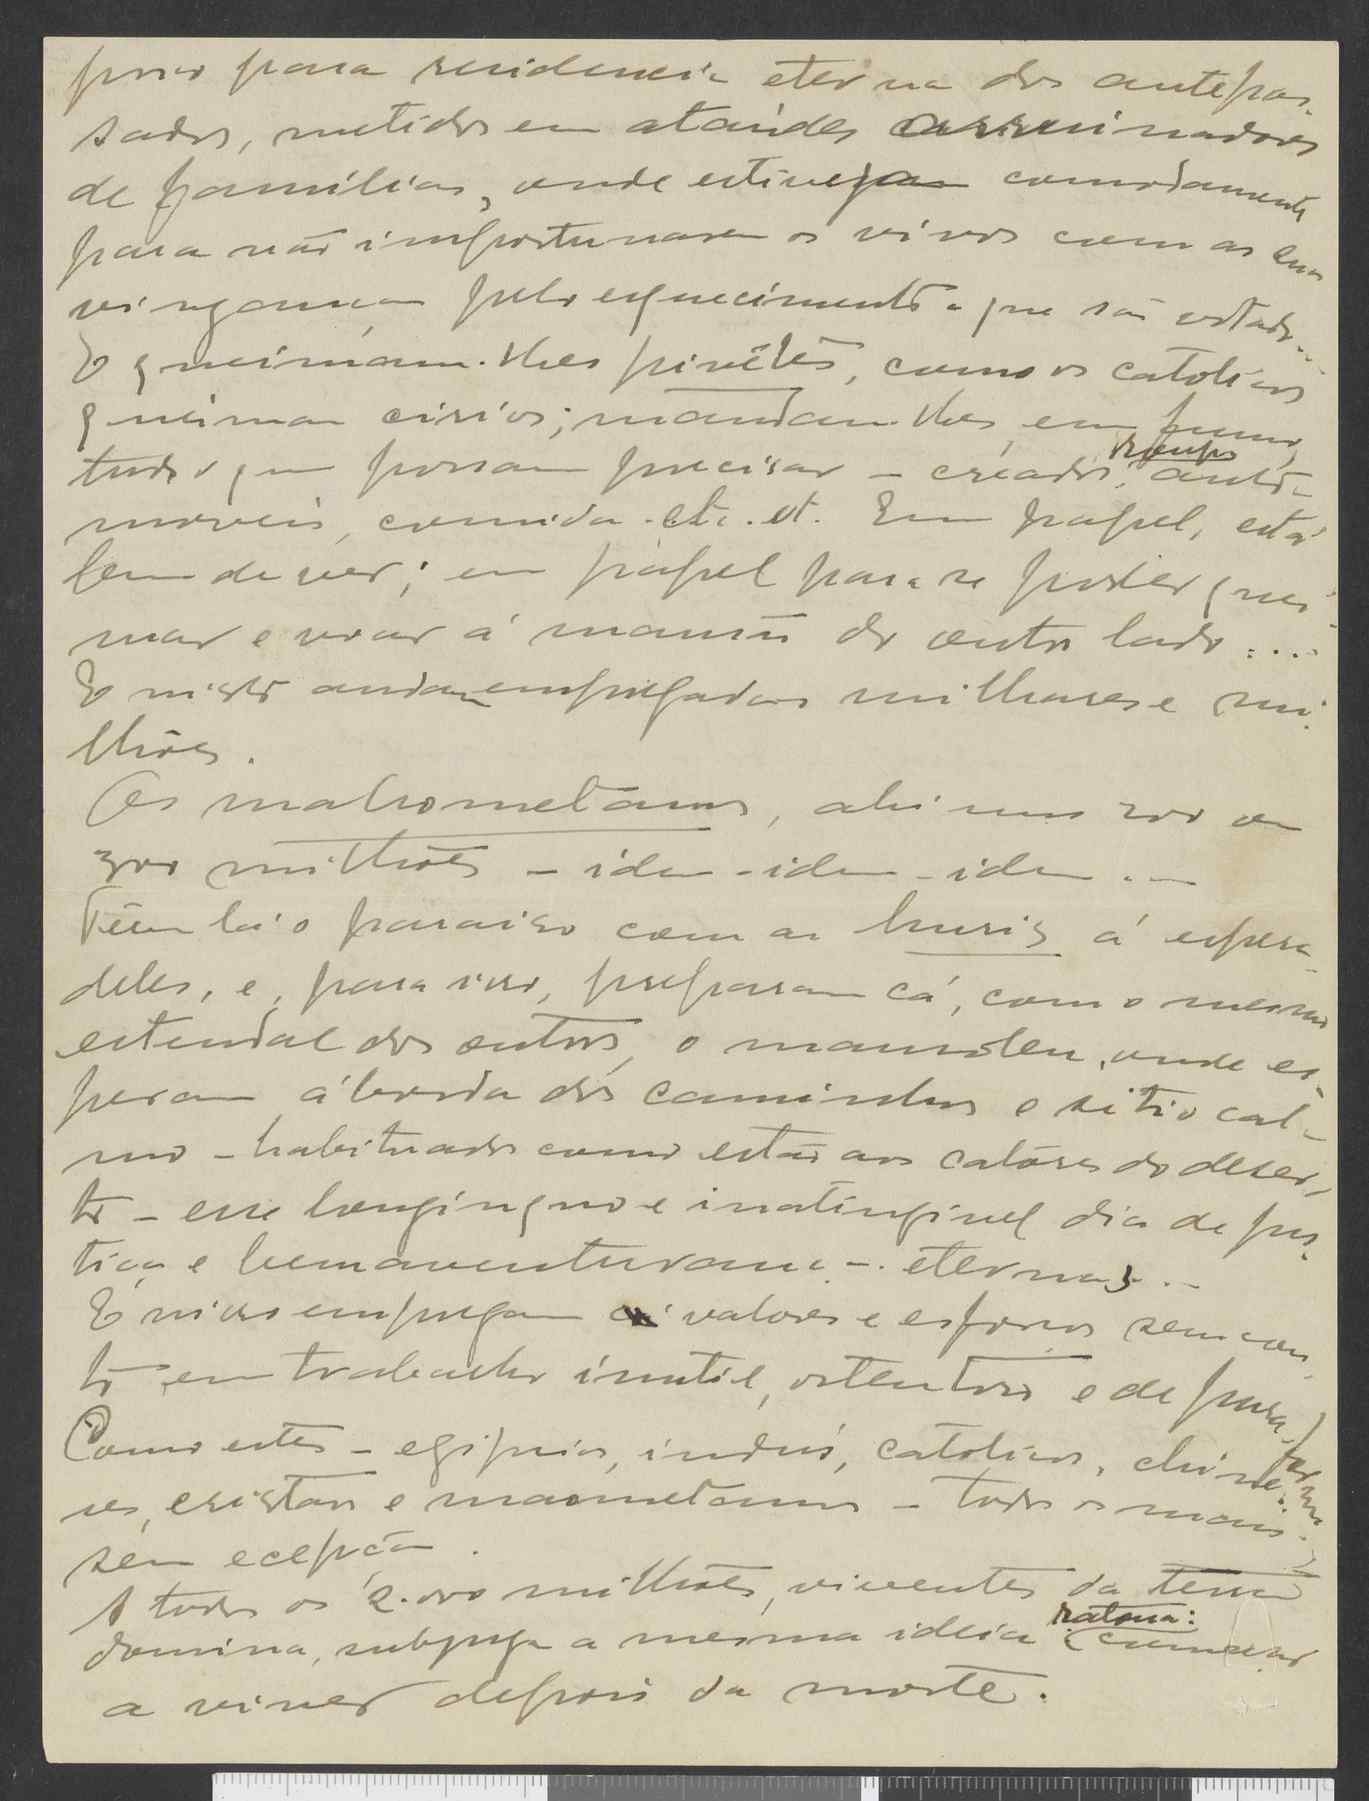 poiso para residencia eterna dos antepas-
sados, metidos em ataúdes arruinadores
de familias, onde estivessem comodamente
para não importunarem os vivos com as suas
vinganças pelo esquecimento a que são votados...
E queimam-lhes pivêtes, como os catolicos
queimam cirios; mandam-lhes em fumo,
tudo o que possam precisar – creados, roupas, auto-
moveis, comida. etc. et. Em papel, está
bem de ver; em papel para se poder quei-
mar e voar á mansão do outro lado....
E nisto andam empregados milhares e mi-
lhões.
Os mahometanos, ahi uns 200 ou
300 milhões – idem – idem – idem. –
Têem lá o paraiso com as huris á espera
deles, e, para isso, preparam cá, com o mesmo
estendal dos outros, o mausoleu, onde es-
peram á borda dos caminhos e sitio cal-
mo – habituados como estão aos calores do deser-
to – esse longinquo e inatingivel dia de jus-
tiça e bemaventurança – eternas..
E nisso empregam valores e esforços sem con-
to, em trabalho inutil, ostentoso e de pura forma.
Como estes – egipcios, indús, catolicos, chine-
ses, cristãos e maometanos – todos os mais
sem ecepção.
A todos os 2.000 milhões, viventes da terra
domina, subjuga a mesma ideia ratona: começar
a viver depois da morte.